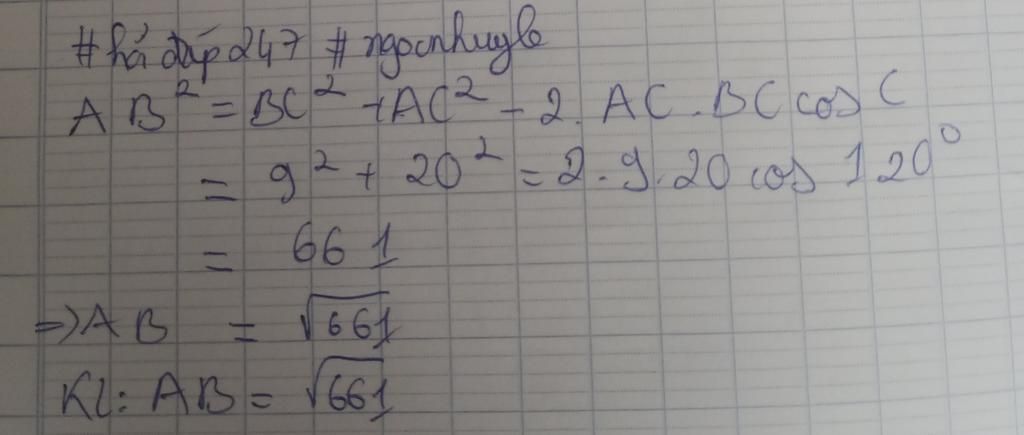 #hỏi đáp 247 #ngocnhuyle
AB² = BC² + AC² - 2. AC . BC cos C
= 9² + 20² = 2 . 9 . 20 cos 120⁰
= 661
=> AB = √661
KL : AB = √661